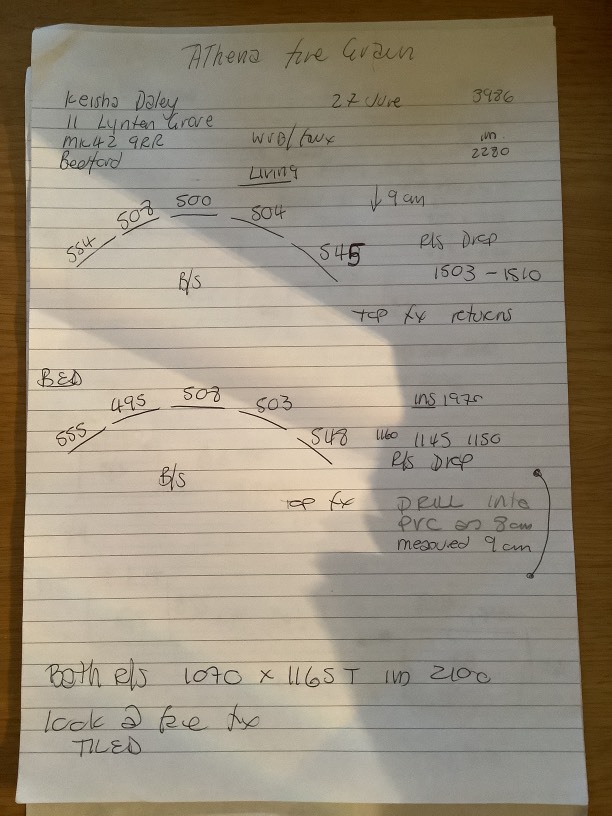 Athena fire Grain
Keisha Daley 27 June 3986
11 Lynten Grove
MK42 9RR WVD/faux in
Bedford 2280
Living
554 508 500 504 545 ↓ 9 cm
R/s Drop
B/s 1503 - 1510
top fx returns
BED
555 495 508 503 548 ins 1970
1160 1145 1150
R/s Drop
B/s
top fx DRILL into
PVC as 8cm
measured 9cm
Both R/s 1070 x 1165 T in 2100
look @ face fx
TILED